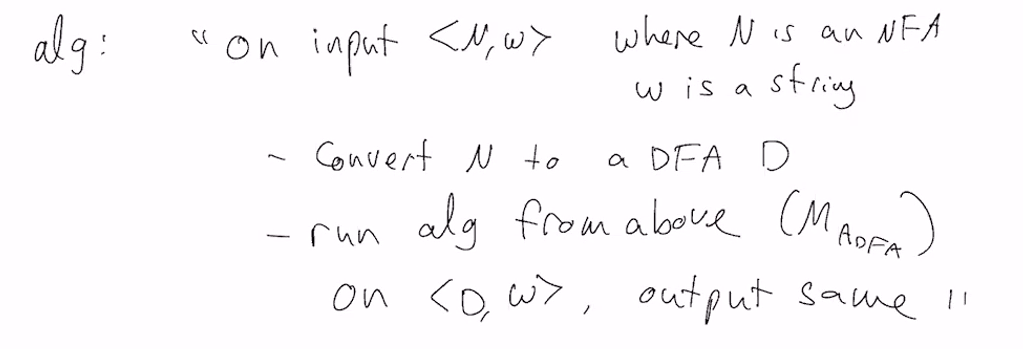 alg: "on input <N,w> where N is an NFA
w is a string
- Convert N to a DFA D
- run alg from above (M_ADFA)
on <D,w>, output same "